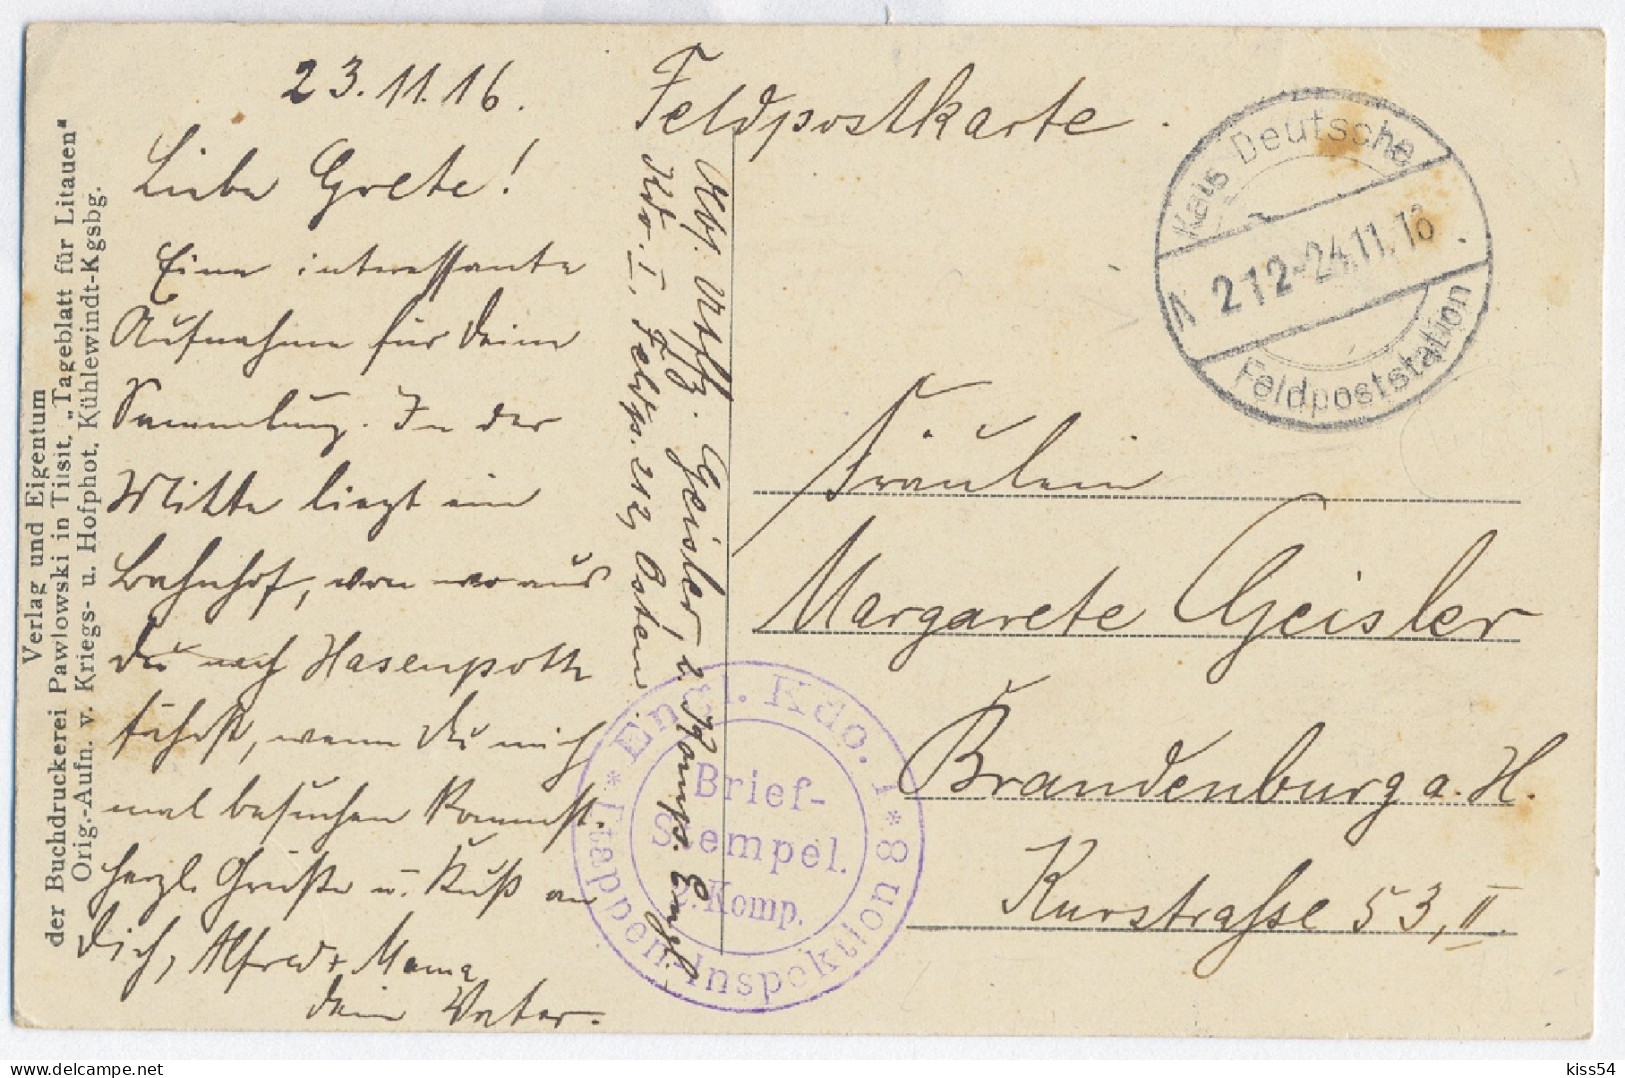 23.11.16.
Liebe Grete!
Eine interessante
Aufnahme für Deine
Sammlung. In der
Mitte liegt ein
Bahnhof, von wo aus
Du nach Hasenpoth
fährst, wenn Du mich
mal besuchen kommst.
Herzl. Grüße u. Kuß an
Dich, Alfred + Mama
Dein Vater.
Feldpostkarte.
Abs. Uffz. Geisler, 2. Komp. Engl.
Kdo. I, Feldp. 212, Osten.
Fräulein
Margarete Geisler
Brandenburg a. H.
Kurstraße 53, II.
Kais Deutsche
212-24.11.16
Feldpoststation
Engl. Kdo. 1
Brief-
Stempel.
2. Komp.
Etappen-Inspektion 8
Verlag und Eigentum
der Buchdruckerei Pawlowski in Tilsit, „Tageblatt für Litauen"
Orig.-Aufn. v. Kriegs- u. Hofphot. Kühlewindt-Kgsbg.
kiss54